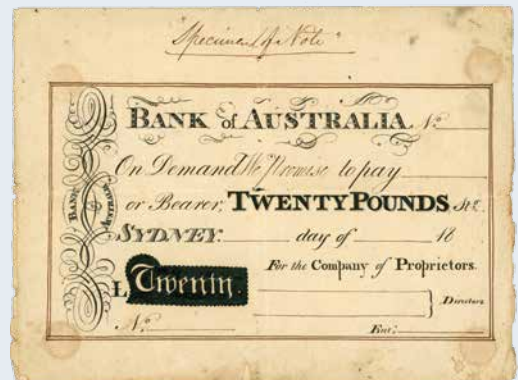 "Specimen of a Note"
BANK of AUSTRALIA No
On Demand We Promise to pay
or Bearer, TWENTY POUNDS Stg.
SYDNEY. day of 18
For the Company of Proprietors.
L Twenty.
Directors
No
Ent:
BANK AUSTRALIA